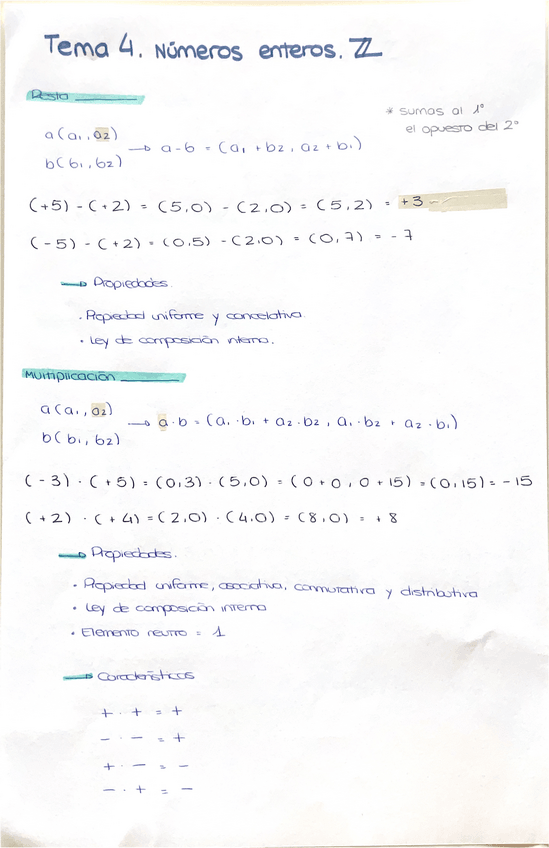 Tema 4. Números enteros. ℤ
Resta
* sumas al 1º
el opuesto del 2º
a(a₁, a₂)
b(b₁, b₂)
→ a-b = (a₁ + b₂, a₂ + b₁)
(+5) - (+2) = (5,0) - (2,0) = (5,2) = +3
(-5) - (+2) = (0,5) - (2,0) = (0,7) = -7
→ Propiedades.
· Propiedad uniforme y cancelativa.
· Ley de composición interna.
Multiplicación
a(a₁, a₂)
b(b₁, b₂)
→ a·b = (a₁·b₁ + a₂·b₂, a₁·b₂ + a₂·b₁)
(-3) · (+5) = (0,3) · (5,0) = (0+0, 0+15) = (0,15) = -15
(+2) · (+4) = (2,0) · (4,0) = (8,0) = +8
→ Propiedades.
· Propiedad uniforme, asociativa, conmutativa y distributiva
· Ley de composición interna
· Elemento neutro = 1
→ Características
+ · + = +
- · - = +
+ · - = -
- · + = -